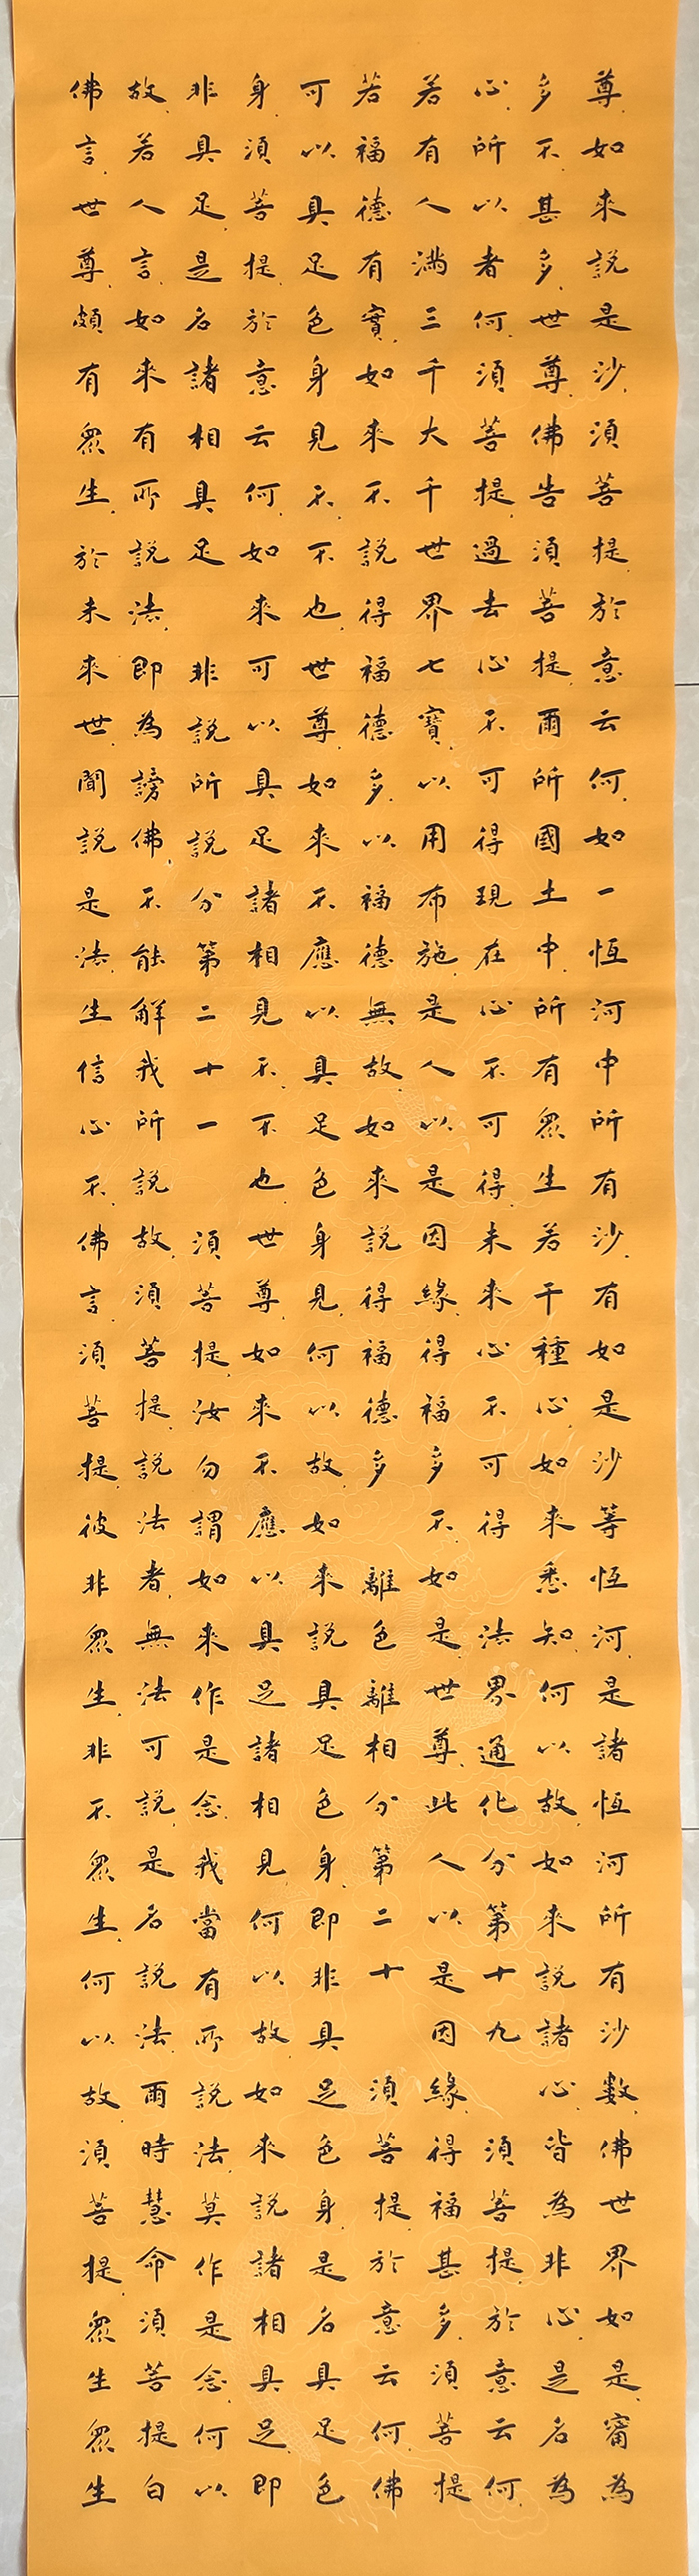 尊如來說是沙須菩提於意云何如一恆河中所有沙有如是沙等恆河是諸恆河所有沙數佛世界如是甯為
多不甚多世尊佛告須菩提爾所國土中所有眾生若干種心如來悉知何以故如來說諸心皆為非心是名為
心所以者何須菩提過去心不可得現在心不可得未來心不可得 法界通化分第十九 須菩提於意云何
若有人滿三千大千世界七寶以用布施是人以是因緣得福多不如是世尊此人以是因緣得福甚多須菩提
若福德有實如來不說得福德多以福德無故如來說得福德多 離色離相分第二十 須菩提於意云何佛
可以具足色身見不不也世尊如來不應以具足色身見何以故如來說具足色身即非具足色身是名具足色
身須菩提於意云何如來可以具足諸相見不不也世尊如來不應以具足諸相見何以故如來說諸相具足即
非具足是名諸相具足 非說所說分第二十一 須菩提汝勿謂如來作是念我當有所說法莫作是念何以
故若人言如來有所說法即為謗佛不能解我所說故須菩提說法者無法可說是名說法爾時慧命須菩提白
佛言世尊頗有眾生於未來世聞說是法生信心不佛言須菩提彼非眾生非不眾生何以故須菩提眾生眾生